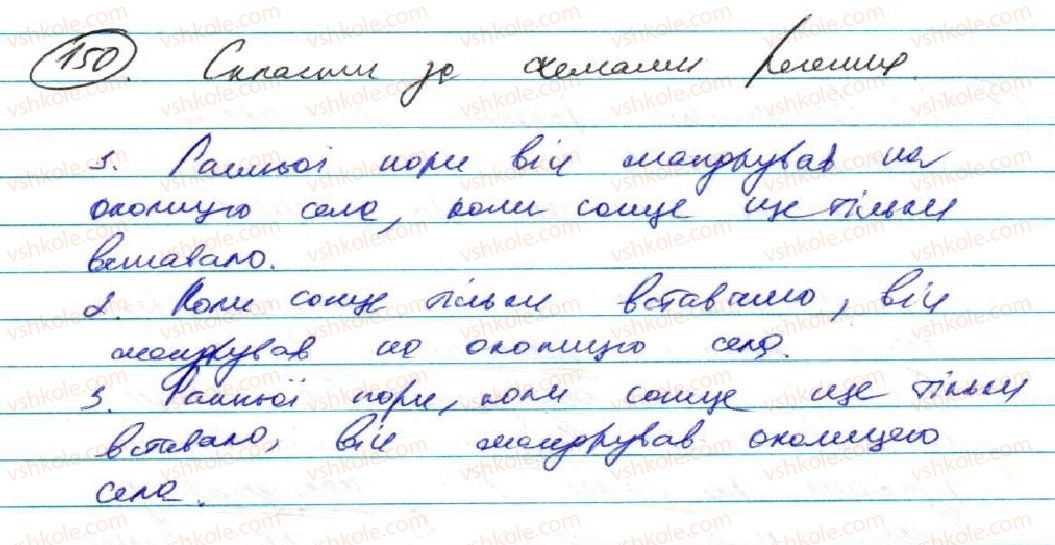 150. Скласти за схемами речення.
1. Ранньої пори він мандрував на
околицю села, коли сонце ще тільки
вставало.
2. Коли сонце тільки вставало, він
мандрував на околицю села.
3. Ранньої пори, коли сонце ще тільки
вставало, він мандрував околицею
села.